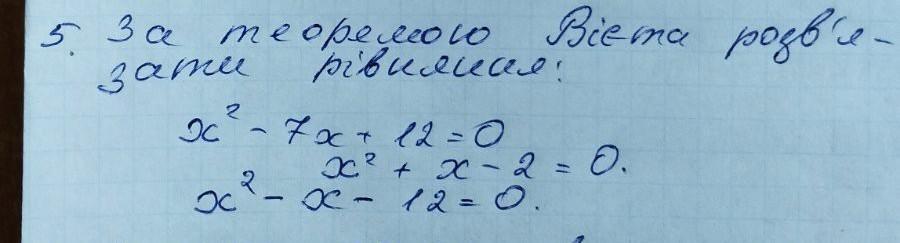 5. За теоремою Вієта розв'я-
зати рівняння:
x² - 7x + 12 = 0
x² + x - 2 = 0.
x² - x - 12 = 0.